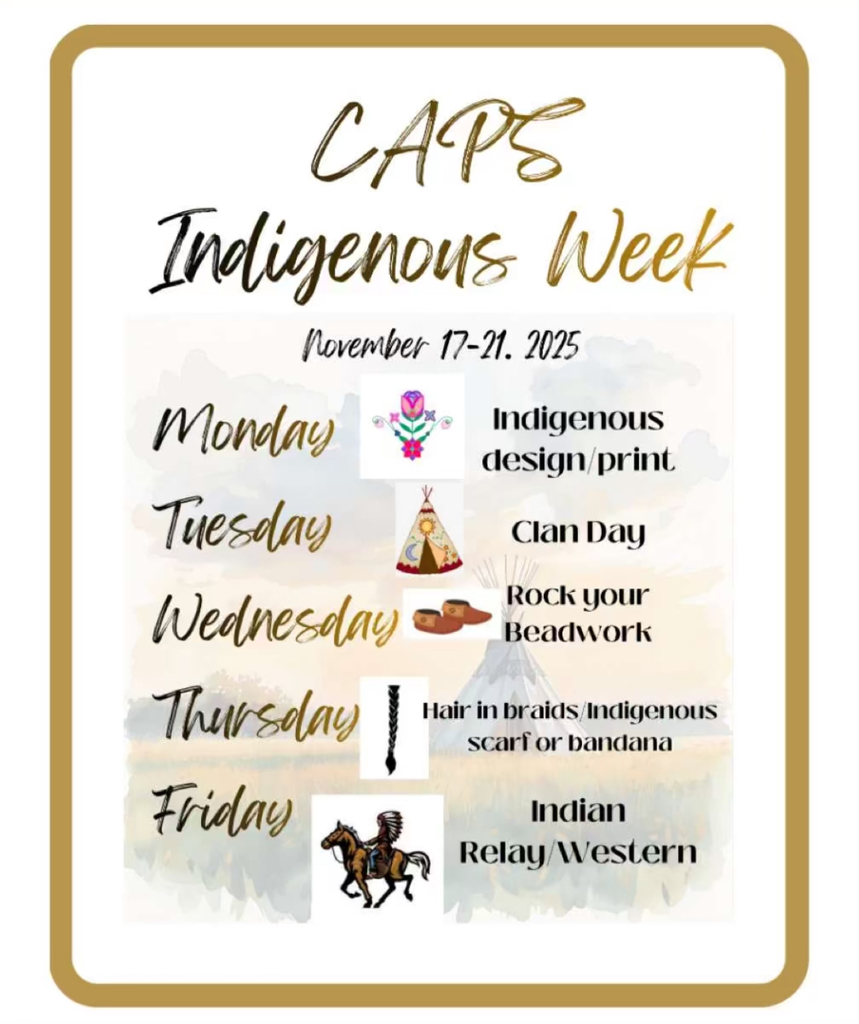 CAPS
Indigenous Week
November 17-21. 2025
Monday
Indigenous
design/print
Tuesday
Clan Day
Wednesday
Rock your
Beadwork
Thursday
Hair in braids/Indigenous
scarf or bandana
Friday
Indian
Relay/Western